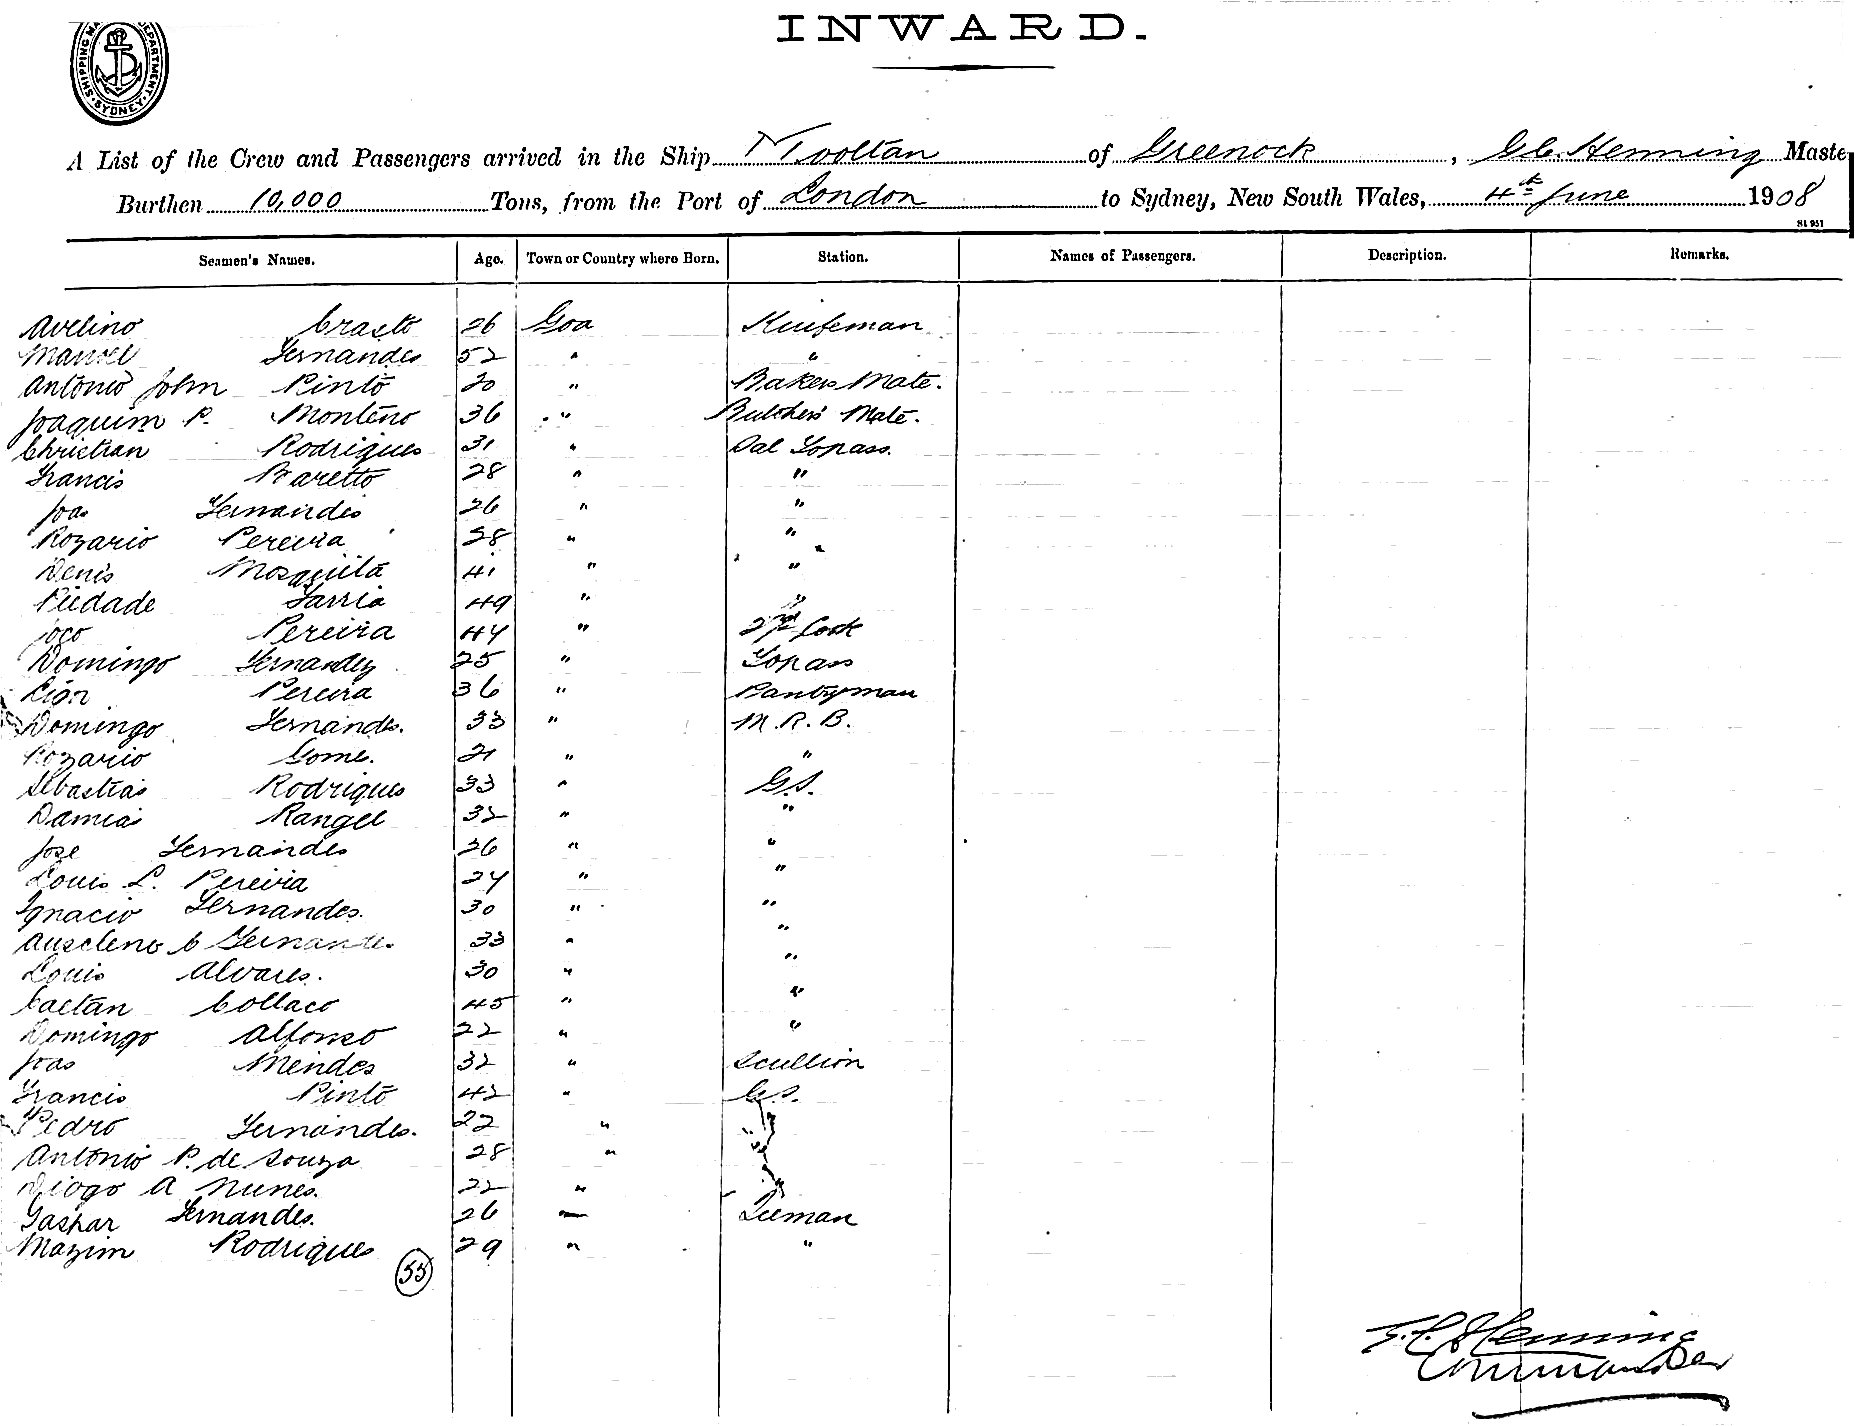 INWARD.
SHIPPING DEPARTMENT SYDNEY
A List of the Crew and Passengers arrived in the Ship Mooltan of Greenock, Henning Maste
Burthen 10,000 Tons, from the Port of London to Sydney, New South Wales, 4th June 1908
Seamen's Names. Age. Town or Country where Born. Station. Names of Passengers. Description. Remarks.
Avelino Crasto 26 Goa Knifeman
Manoel Fernandes 52 " "
Antonio John Pinto 20 " Bakers Mate.
Joaquim P. Monteiro 36 " Butchers Mate.
Christian Rodrigues 31 " Topass.
Francis Baretto 28 " "
Joas Fernandes 26 " "
Rozario Pereira 28 " "
Denis Mosquita 41 " "
Piedade Farria 49 " "
Joco Pereira 44 " 2nd Cook
Domingo Fernandez 25 " Topass
Pereira 36 " Pantryman
Domingo Fernandes. 33 " M.R.B.
Rozario Gome. 21 " "
Sebastias Rodrigues 33 " G.S.
Damias Rangel 32 " "
Jose Fernandes 26 " "
Louis L. Pereira 24 " "
Ignacio Fernandes. 30 " "
C Fernandes 33 " "
Louis Alvares. 30 " "
Caetan Collaco 45 " "
Domingo Alfonso 22 " "
Joas Mendes 32 " Scullion
Francis Pinto 42 " G.S.
Pedro Fernandes. 22 "
Antonio P. de Souza 28 "
Diogo A Nunes. 22 "
Gaspar Fernandes. 26 Lieman
Mazim Rodrigues 29 " "
55
Henning
Commander